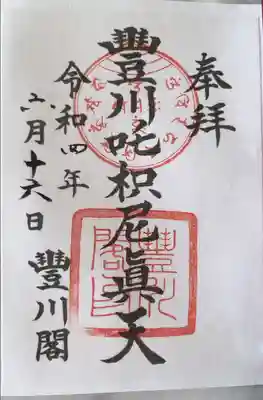 奉拝
豐川吒枳尼眞天
令和四年
六月十六日
豐川閣